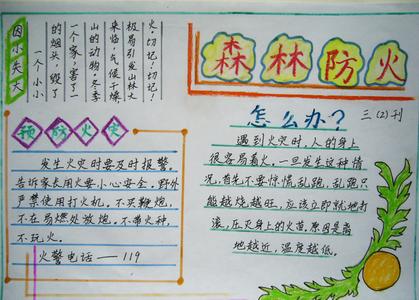 因小失大
一个小小
的烟头，毁了
一个家，害了一
山的动物。冬季
来临，气候干燥
极易引发山林大
火。切记！切记！
森林防火
三(2)刊
预防火灾
发生火灾时要及时报警。
告诉家长用火要小心安全。野外
严禁使用打火机。不买鞭炮，
不在易燃处放炮。不带火种，
不玩火。
火警电话——119
怎么办？
遇到火灾时，人的身上
很容易着火，一旦发生这种情
况，首先不要惊慌乱跑，乱跑只
能越烧越旺，应该立即就地打
滚，压灭身上的火苗，原因是离
地越近，温度越低。